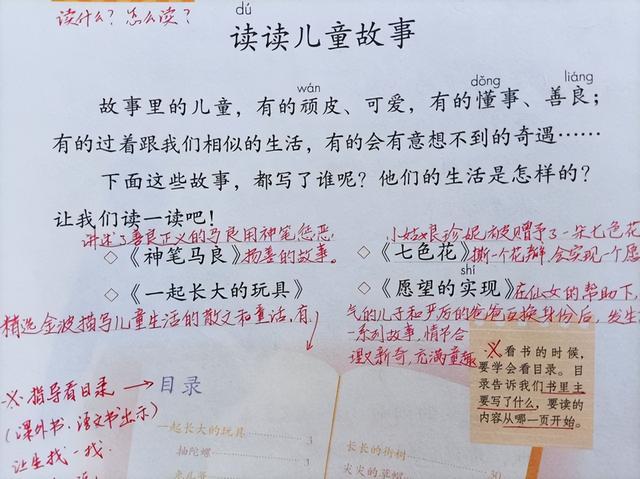 读什么？怎么读？
dú
读读儿童故事
wán
dǒng
liáng
故事里的儿童，有的顽皮、可爱，有的懂事、善良；
有的过着跟我们相似的生活，有的会有意想不到的奇遇……
下面这些故事，都写了谁呢？他们的生活是怎样的？
让我们读一读吧！
讲述了善良正义的马良用神笔惩恶
小姑娘珍妮被赠予了一朵七色花
◇《神笔马良》扬善的故事。
◇《七色花》撕一个花瓣，会实现一个愿
shí
◇《一起长大的玩具》
◇《愿望的实现》在仙女的帮助下，
精选金波描写儿童生活的散文和童话，有
气的儿子和严厉的爸爸互换身份后，发生
一系列故事，情节合
理又新奇，充满童趣
※看书的时候，
要学会看目录。目
录告诉我们书里主
要写了什么，要读的
内容从哪一页开始。
※指导看目录→
(课外书、语文书出示)
让生找一找.
目录
一起长大的玩具
抽陀螺 3
兔儿爷
长长的街树
尖尖的草帽 30